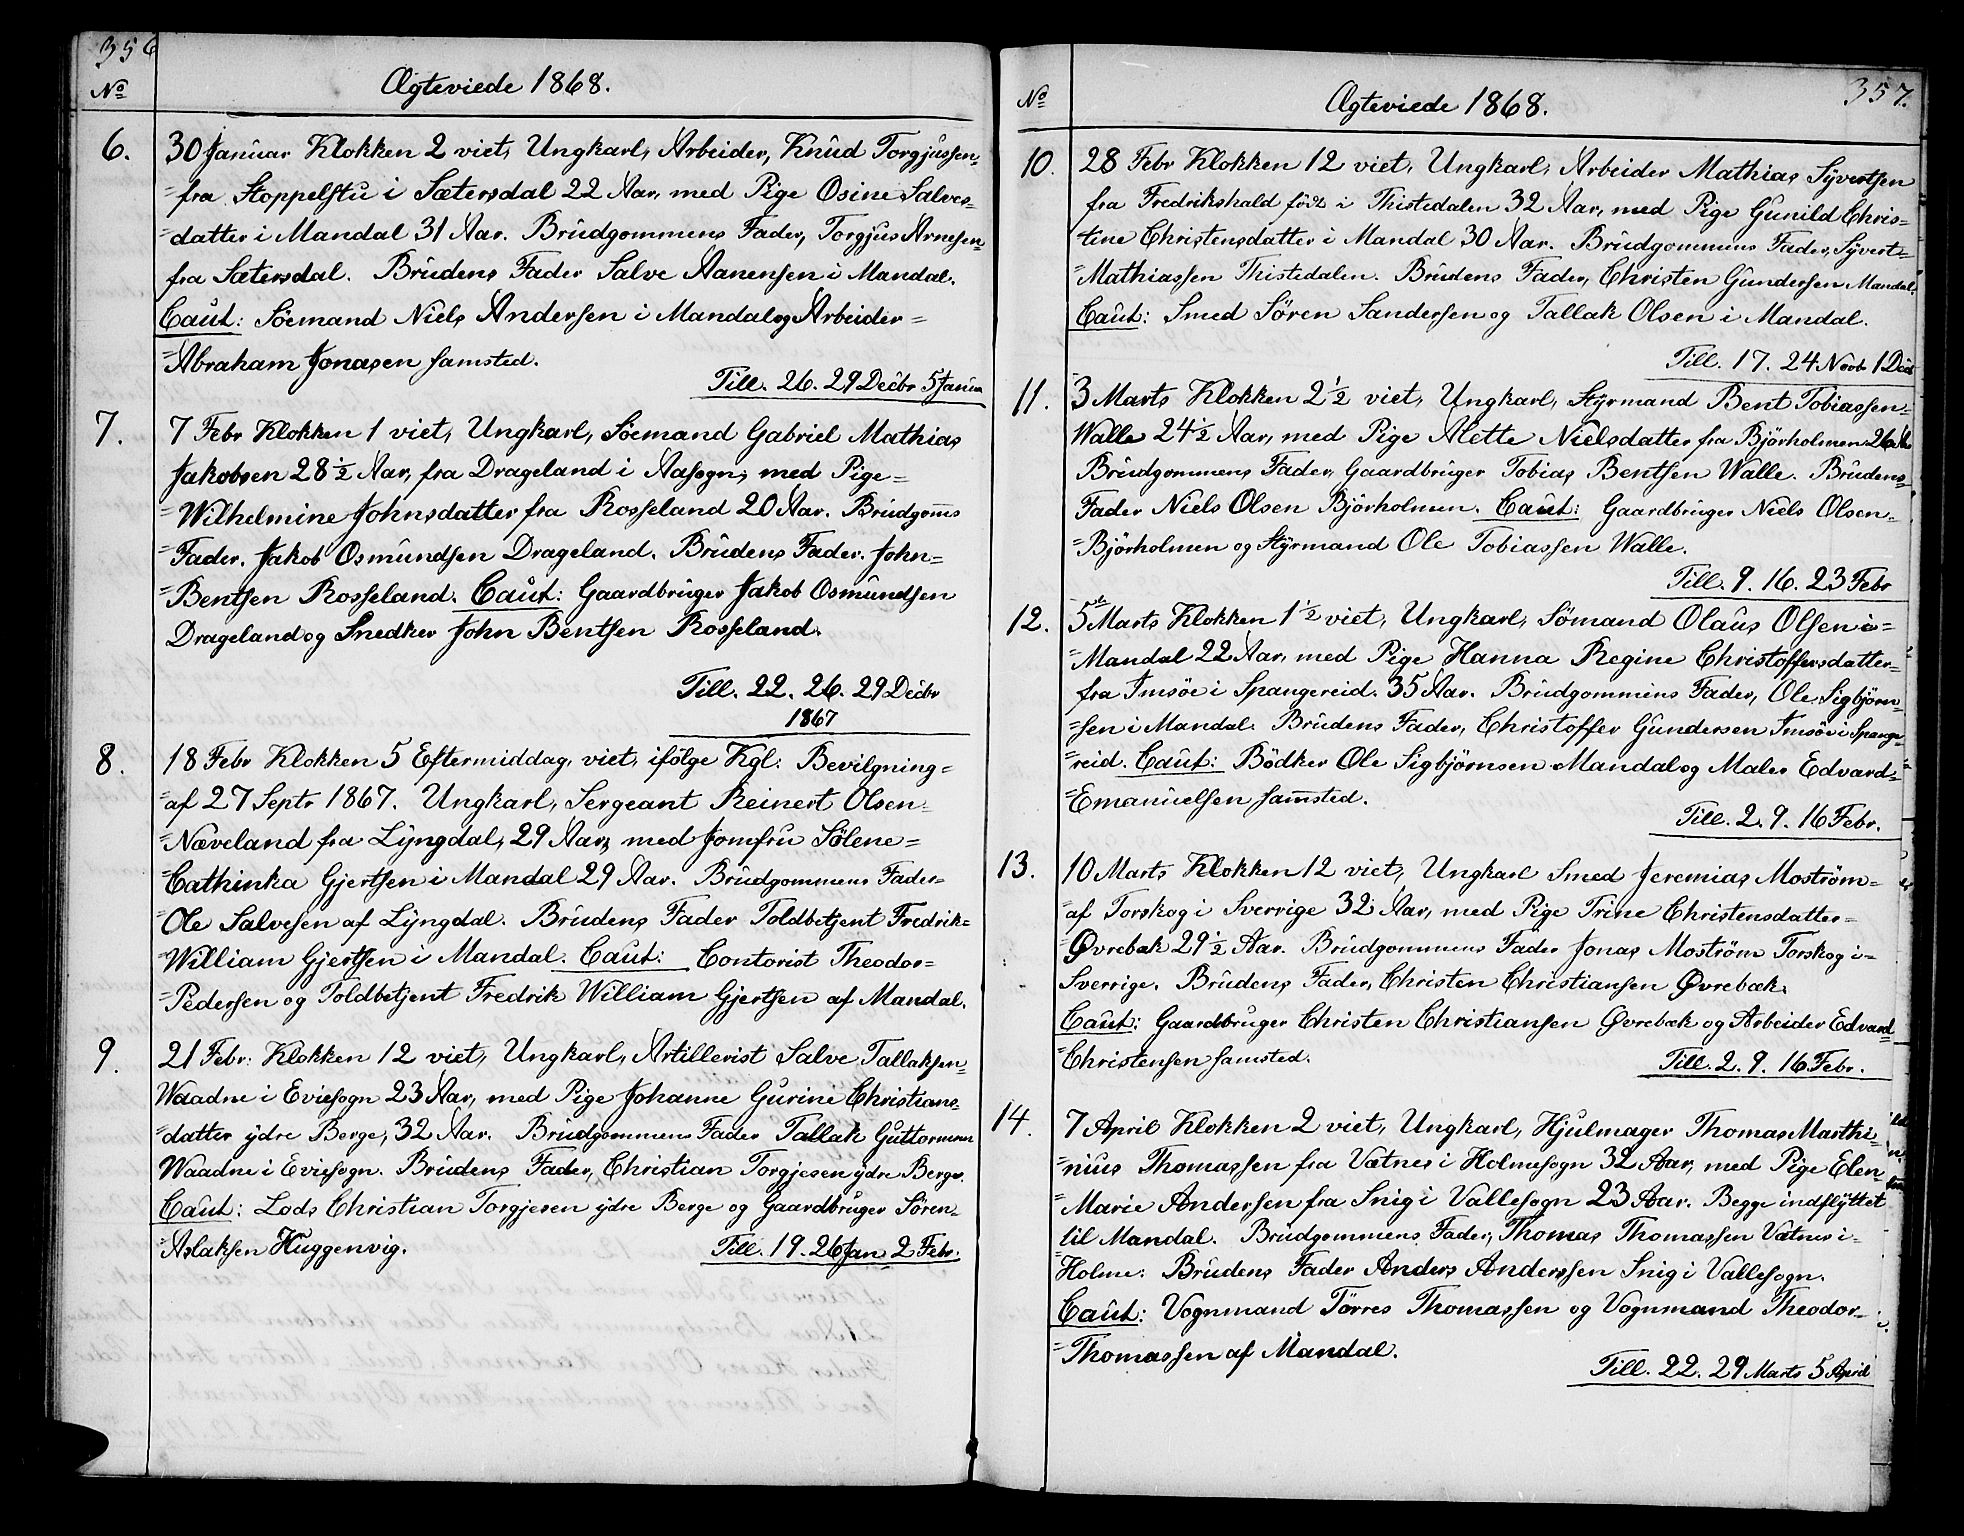 356
No
Ægteviede 1868.
6.
30 Januar Klokken 2 viet, Ungkarl, Arbeider, Knud Torgjussen-
-fra Stoppelstu i Sætersdal 22 Aar, med Pige Osine Salves-
-datter i Mandal 31 Aar. Brudgommens Fader, Torgjus Arnesen
fra Sætersdal. Brudens Fader Salve Aanensen i Mandal.
Caut: Söemand Niels Andersen i Mandal og Arbeider=
-Abraham Jonasen samsted.
Till. 26. 29 Decbr 5 Januar
7.
7 Febr Klokken 1 viet, Ungkarl, Söemand Gabriel Mathias
Jakobsen 28 1/2 Aar, fra Drageland i Aasogn, med Pige=
-Wilhelmine Johnsdatter fra Rosseland 20 Aar. Brudgoms
-Fader. Jakob Osmundsen Drageland. Brudens Fader. John-
-Bentsen Rosseland. Caut: Gaardbruger Jakob Osmundsen
Drageland og Snedker John Bentsen Rosseland.
Till. 22. 26. 29 Decbr
1867
8.
18 Febr Klokken 5 Eftermiddag, viet, ifölge Kgl: Bevilgning=
-af 27 Septr 1867. Ungkarl, Sergeant Reinert Olsen-
-Næveland fra Lyngdal, 29 Aar, med Jomfru Sölene=
-Cathinka Gjertsen i Mandal 29 Aar. Brudgommens Fader-
Ole Salvesen af Lyngdal. Brudens Fader Toldbetjent Fredrik=
-William Gjertsen i Mandal. Caut: Contorist Theodor=
-Pedersen og Toldbetjent Fredrik William Gjertsen af Mandal.
9.
21 Febr: Klokken 12 viet, Ungkarl, Artillerist Salve Tallaksen-
Waadne i Eviesogn 23 Aar, med Pige Johanne Gurine Christians-
-datter ydre Berge, 32 Aar. Brudgommens Fader Tallak Guttormsen
Waadne i Eviesogn. Brudens Fader, Christian Torgjesen ydre Berge.
Caut: Lods Christian Torgjesen ydre Berge og Gaardbruger Sören-
-Aslaksen Huggenvig.
Till. 19. 26 Jan 2 Febr.
357.
No
Ægteviede 1868.
10.
28 Febr Klokken 12 viet, Ungkarl, Arbeider Mathias Syvertsen
fra Fredrikshald født i Thistedalen 32 Aar, med Pige Gunild Chris-
-tine Christensdatter i Mandal 30 Aar. Brudgommens Fader, Syvert-
-Mathiassen Thistedalen. Brudens Fader, Christen Gundersen Mandal.
Caut: Smed Sören Sandersen og Tallak Olsen i Mandal.
Till. 17. 24 Novb 1 Decb
11.
3 Marts Klokken 2 1/2 viet, Ungkarl, Styrmand Bent Tobiassen-
Walle 24 1/2 Aar, med Pige Alette Nielsdatter fra Björholmen 26 Aar
Brudgommens Fader, Gaardbruger Tobias Bentsen Walle. Brudens-
Fader Niels Olsen Björholmen. Caut: Gaardbruger Niels Olsen-
-Björholmen og Styrmand Ole Tobiassen Walle.
Till. 9. 16. 23 Febr
12.
5 Marts Klokken 1 1/2 viet, Ungkarl, Sömand Olaus Olsen i=
-Mandal 22 Aar, med Pige Hanna Regine Christoffersdatter-
-fra Imsöe i Spangereid. 35 Aar. Brudgommens Fader, Ole Sigbjörn-
-sen i Mandal. Brudens Fader, Christoffer Gundersen Imsöe i Spange-
-reid. Caut: Bödker Ole Sigbjörnsen Mandal og Maler Edvard-
-Emanuelsen samsted.
Till. 2. 9. 16 Febr.
13.
10 Marts Klokken 12 viet, Ungkarl Smed Jeremias Moström-
-af Torskog i Sverrige 32 Aar, med Pige Trine Christensdatter-
-Øvrebæk 29 1/2 Aar. Brudgommens Fader Jonas Moström Torskog i-
Sverrige. Brudens Fader, Christen Christiansen Øvrebæk.
Caut: Gaardbruger Christen Christiansen Øvrebæk og Arbeider Edvard
-Christensen samsted.
Till. 2. 9. 16 Febr.
14.
7 April Klokken 2 viet, Ungkarl, Hjulmager Thomas Marthi-
-nius Thomassen fra Vatnes i Holmesogn 32 Aar, med Pige Elen-
-Marie Andersen fra Snig i Vallesogn 23 Aar. Begge indflyttet
til Mandal. Brudgommens Fader, Thomas Thomassen Vatnes i-
-Holme: Brudens Fader Anders Anderssen Snig i Vallesogn.
Caut: Vognmand Törres Thomassen og Vognmand Theodor-
-Thomassen af Mandal.
Till. 22. 29 Marts 5 April